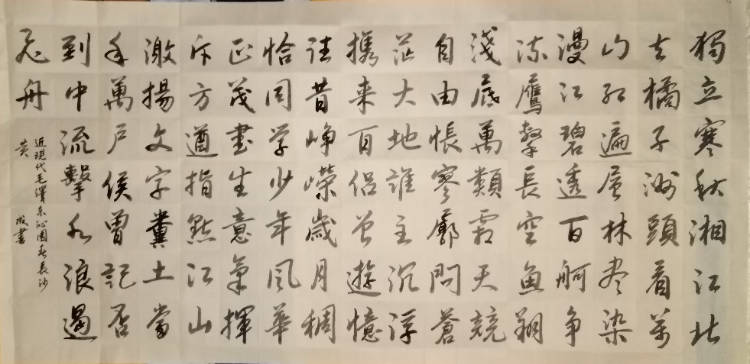 獨立寒秋湘江北
去橘子洲頭看萬
山紅遍層林尽染
漫江碧透百舸争
流鷹擊長空魚翔
淺底萬類霜天競
自由悵寥廓問蒼
茫大地誰主沉浮
携来百侣曾遊憶
往昔崢嶸歲月稠
恰同学少年風華
正茂書生意氣揮
斥方遒指點江山
激揚文字糞土當
年萬户侯曾記否
到中流擊水浪遏
飛舟
近現代毛澤東沁園春長沙
黄 書